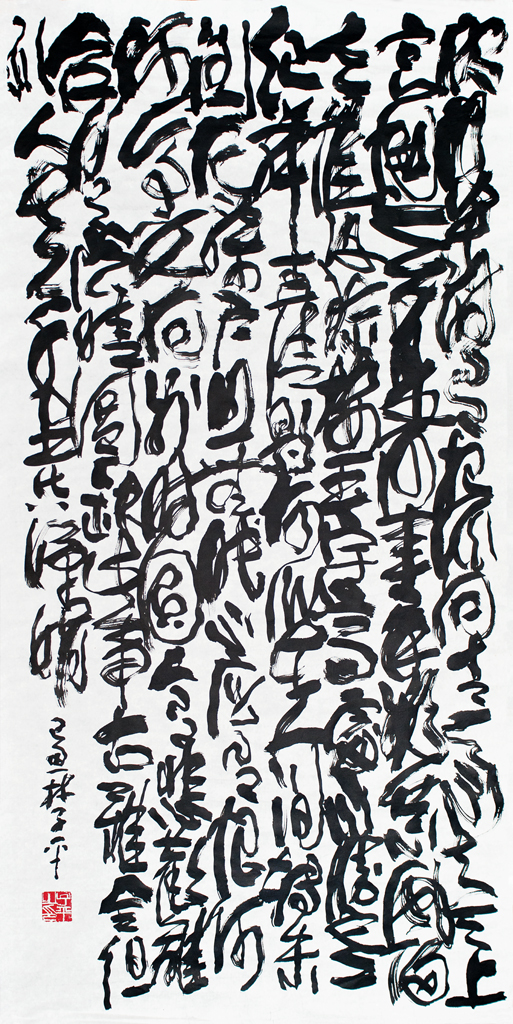 明月幾時有把酒問青天不知天上
宮闕今夕是何年我欲乘風歸
去惟恐瓊樓玉宇高處不勝寒
起舞弄清影何似在人間轉朱
閣低綺户照無眠不應有恨何
事長向別時圓人有悲歡離
合月有陰晴圓缺此事古難全但
願人長久千里共嬋娟
己丑林子平